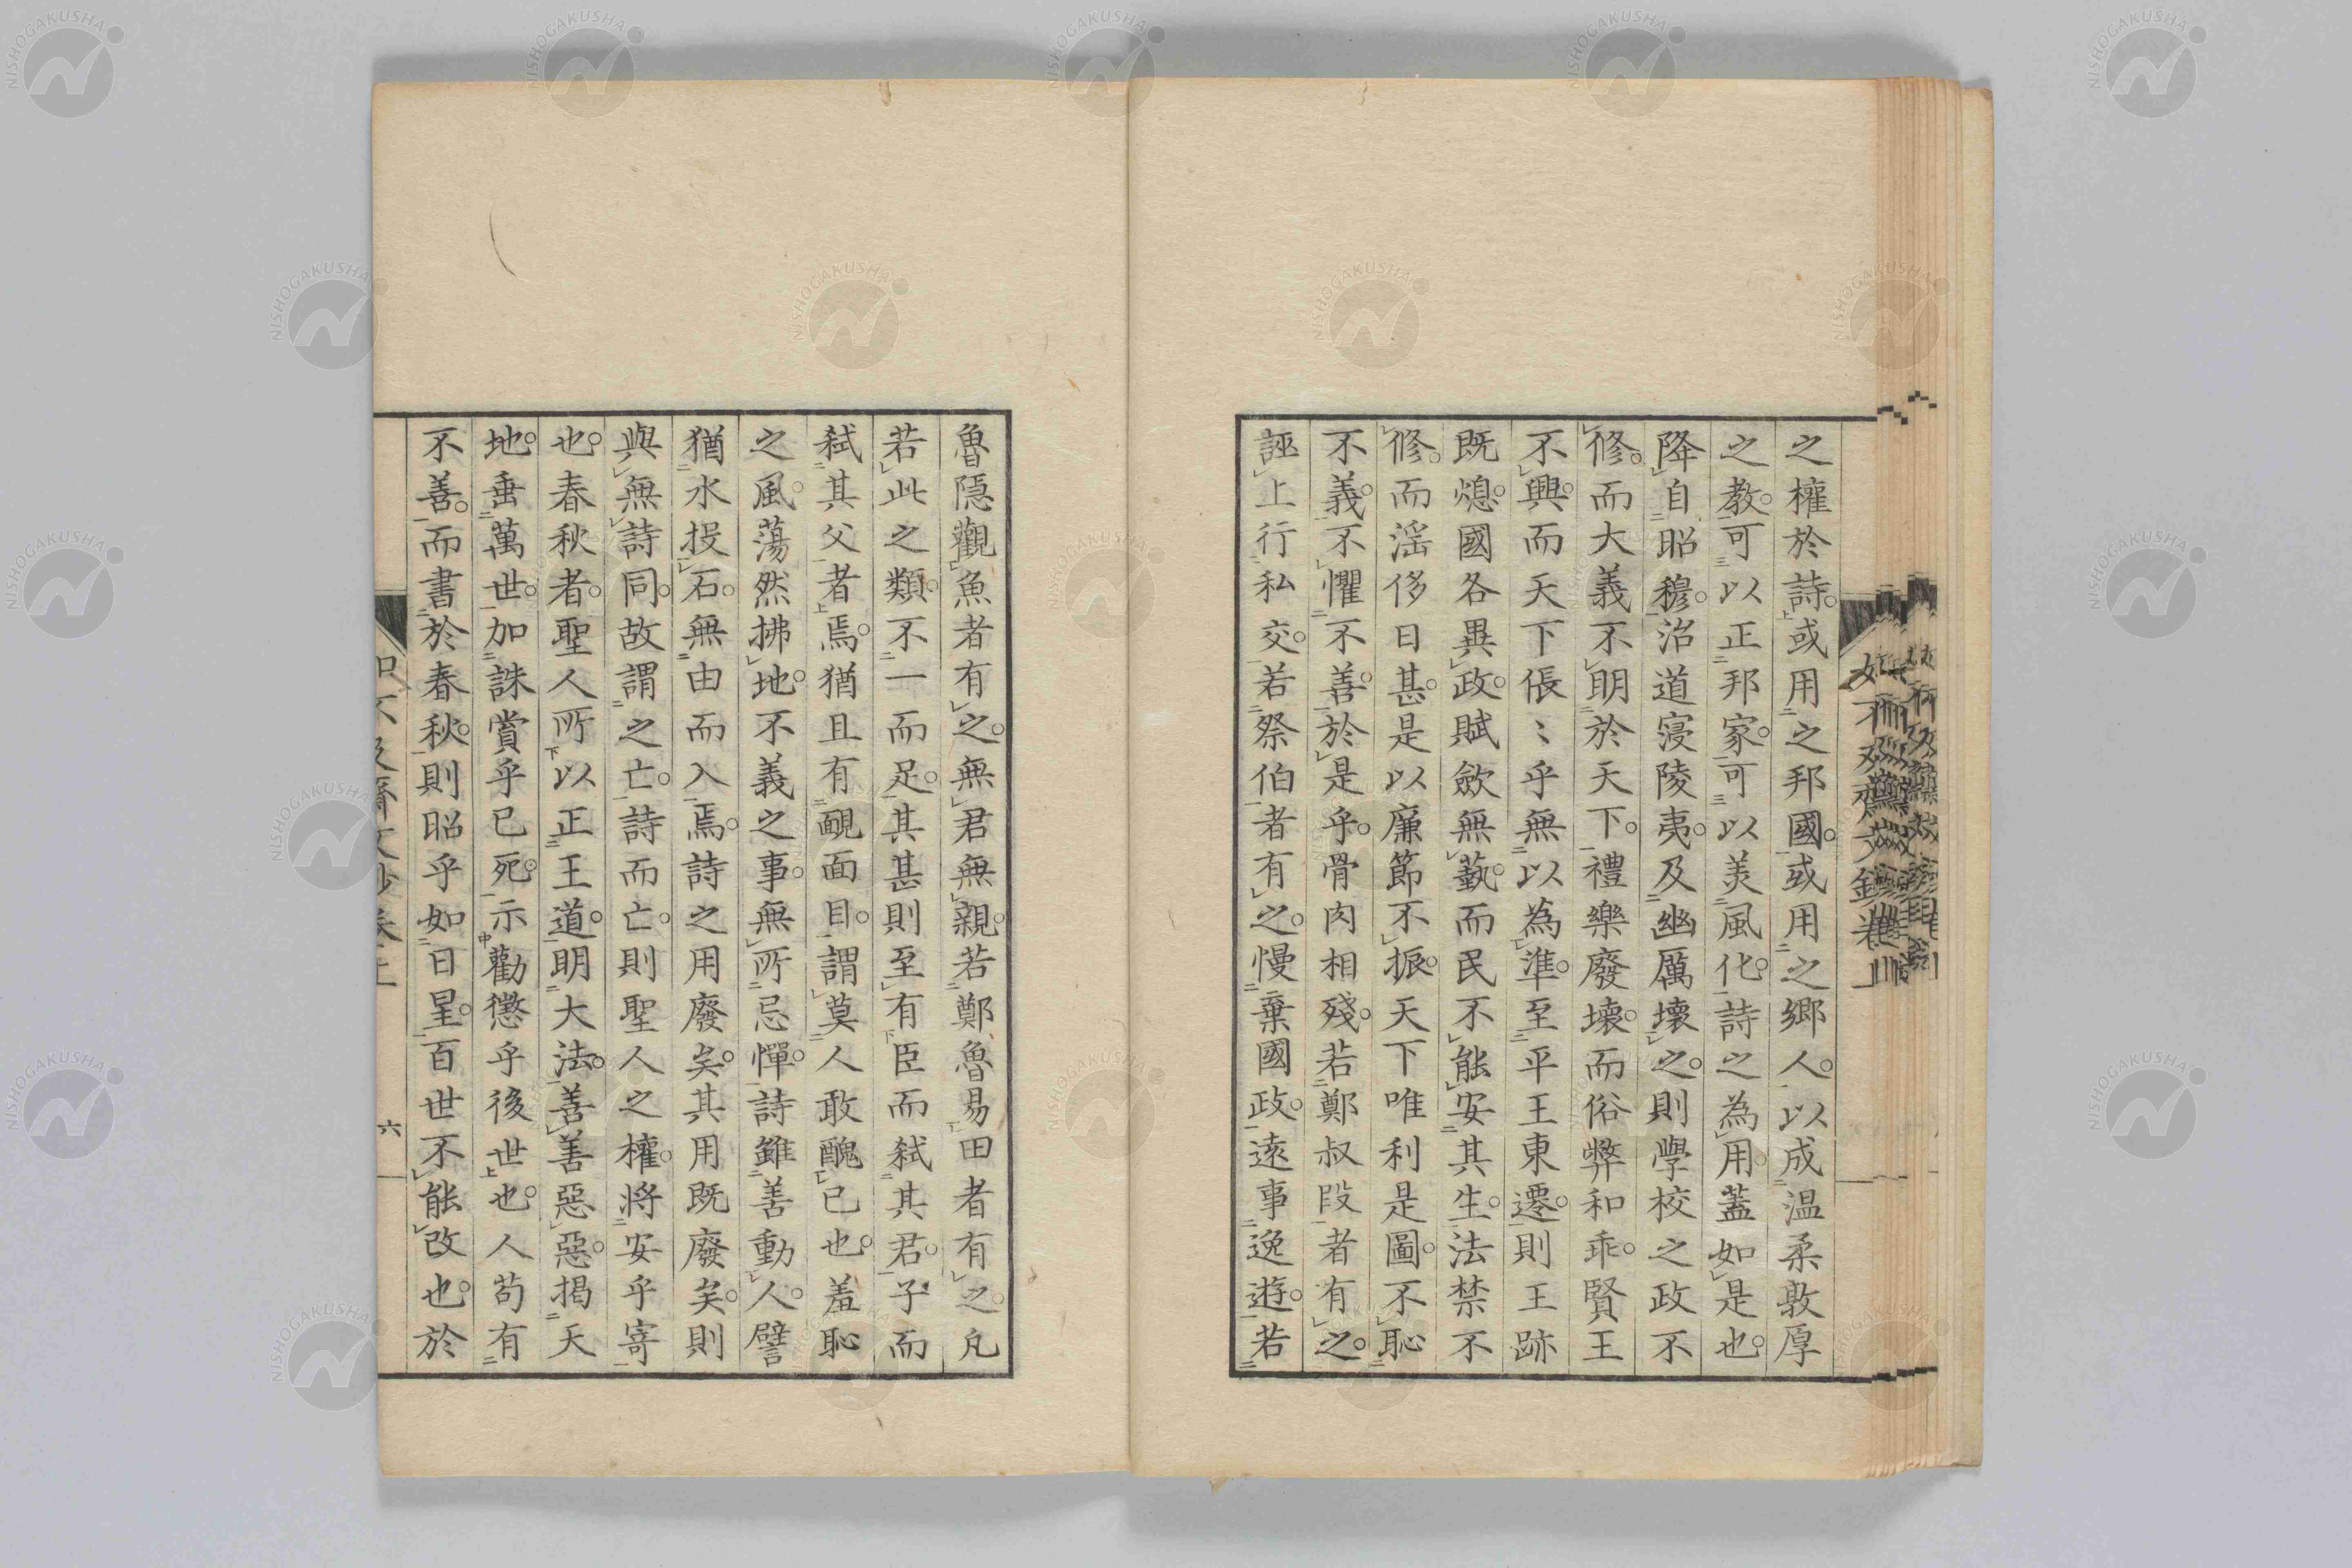 之權於詩。或用之邦國。或用之鄉人。以成温柔敦厚
之教。可以正邦家。可以美風化。詩之為用。蓋如是也。
降自昭穆。治道寖陵夷。及幽厲壞之。則學校之政不
修。而大義不明於天下。禮樂廢壞。而俗弊和乖。賢王
不興。而天下倀〻乎無以為準。至平王東遷。則王跡
既熄。國各異政。賦斂無藝。而民不能安其生。法禁不
修。而淫侈日甚。是以廉節不振。天下唯利是圖。不恥
不義。不懼不善。於是乎。骨肉相殘。若鄭叔段者有之。
誣上行私交。若祭伯者有之。慢棄國政。遠事逸遊。若
魯隱觀魚者有之。無君無親。若鄭魯易田者有之。凡
若此之類。不一而足。其甚則至有臣而弑其君。子而
弑其父者焉。猶且有靦面目。謂莫人敢醜已也。羞恥
之風。蕩然拂地。不義之事。無所忌憚。詩雖善動人。譬
猶水投石。無由而入焉。詩之用廢矣。其用既廢矣。則
與無詩同。故謂之亡。詩而亡。則聖人之權。將安乎寄
也。春秋者。聖人所以正王道。明大法。善善惡惡。揭天
地。垂萬世。加誅賞乎已死。示勸懲乎後世也。人苟有
不善。而書於春秋。則昭乎如日星。百世不能改也。於
六
NISHOGAKUSHA